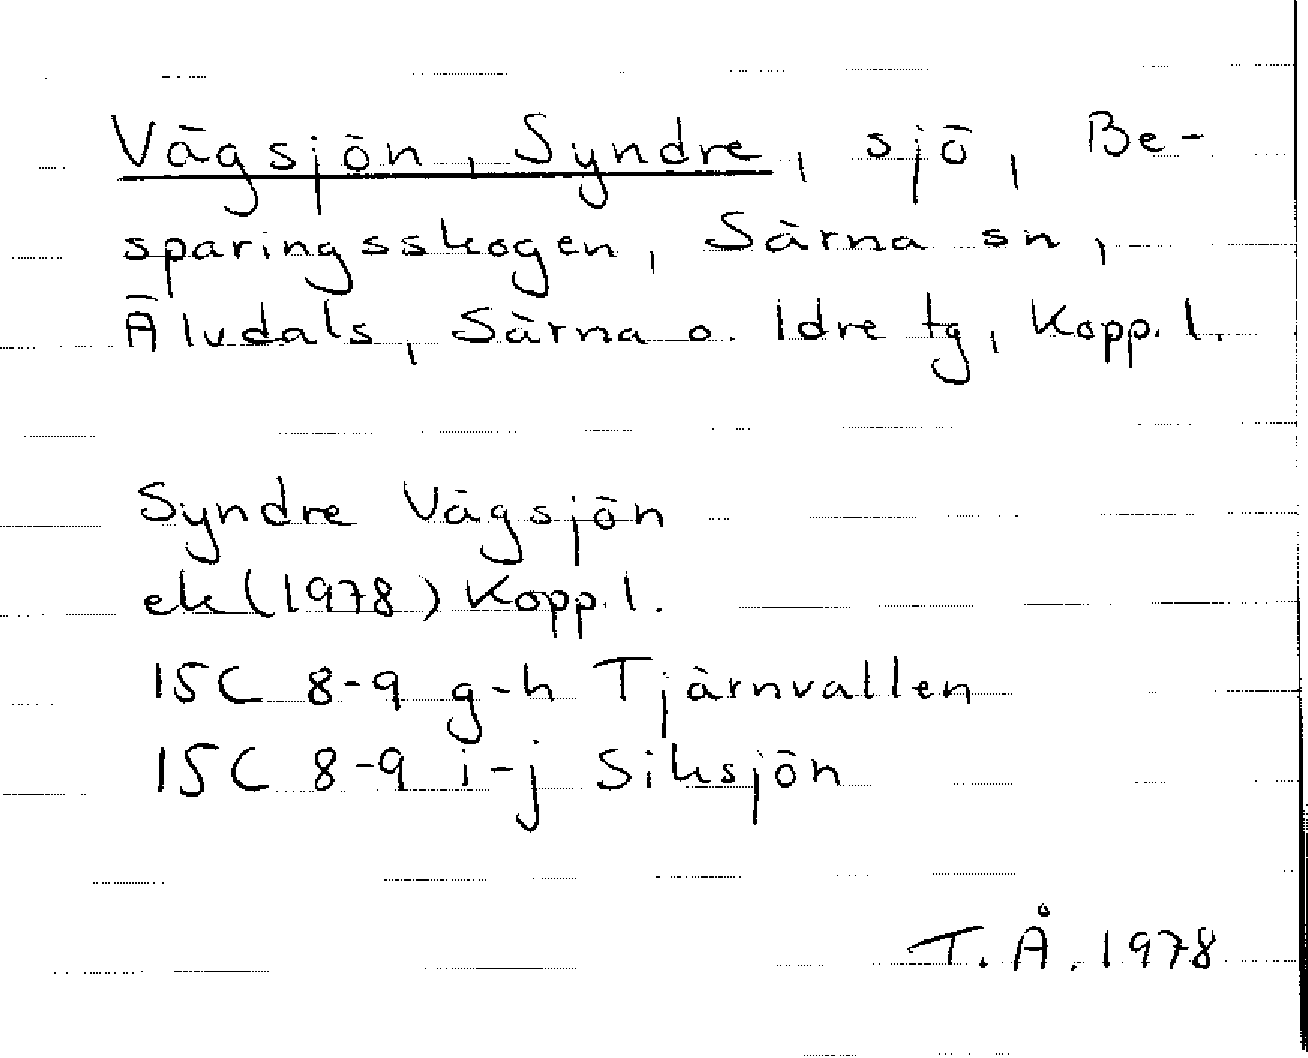 Vägsjön, Syndre, sjö, Be-
sparingsskogen, Särna sn,
Älvdals, Särna o. Idre tg, Kopp. l.
Syndre Vägsjön
ek (1978) Kopp. l.
15C 8-9 g-h Tjärnvallen
15C 8-9 i-j Siksjön
T. Å. 1978